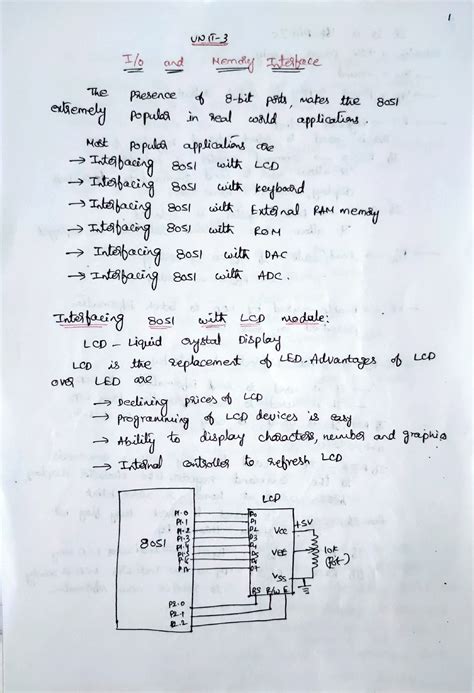 1
UNIT-3
I/o and Memory Interface
The presence of 8-bit ports, makes the 8051
extremely popular in real world applications.
Most popular applications are
→ Interfacing 8051 with LCD
→ Interfacing 8051 with keyboard
→ Interfacing 8051 with External RAM memory
→ Interfacing 8051 with ROM
→ Interfacing 8051 with DAC
→ Interfacing 8051 with ADC.
Interfacing 8051 with LCD module:
LCD - Liquid crystal Display
LCD is the replacement of LED. Advantages of LCD
over LED are
→ Declining prices of LCD
→ Programming of LCD devices is easy
→ Ability to display characters, number and graphics
→ Internal controller to refresh LCD
LCD
8051
P1.0
P1.1
P1.2
P1.3
P1.4
P1.5
P1.6
P1.7
D0
D1
D2
D3
D4
D5
D6
D7
VCC
+5V
VEE
10K
(Pot)
VSS
RS R/W E
P2.0
P2.1
P2.2